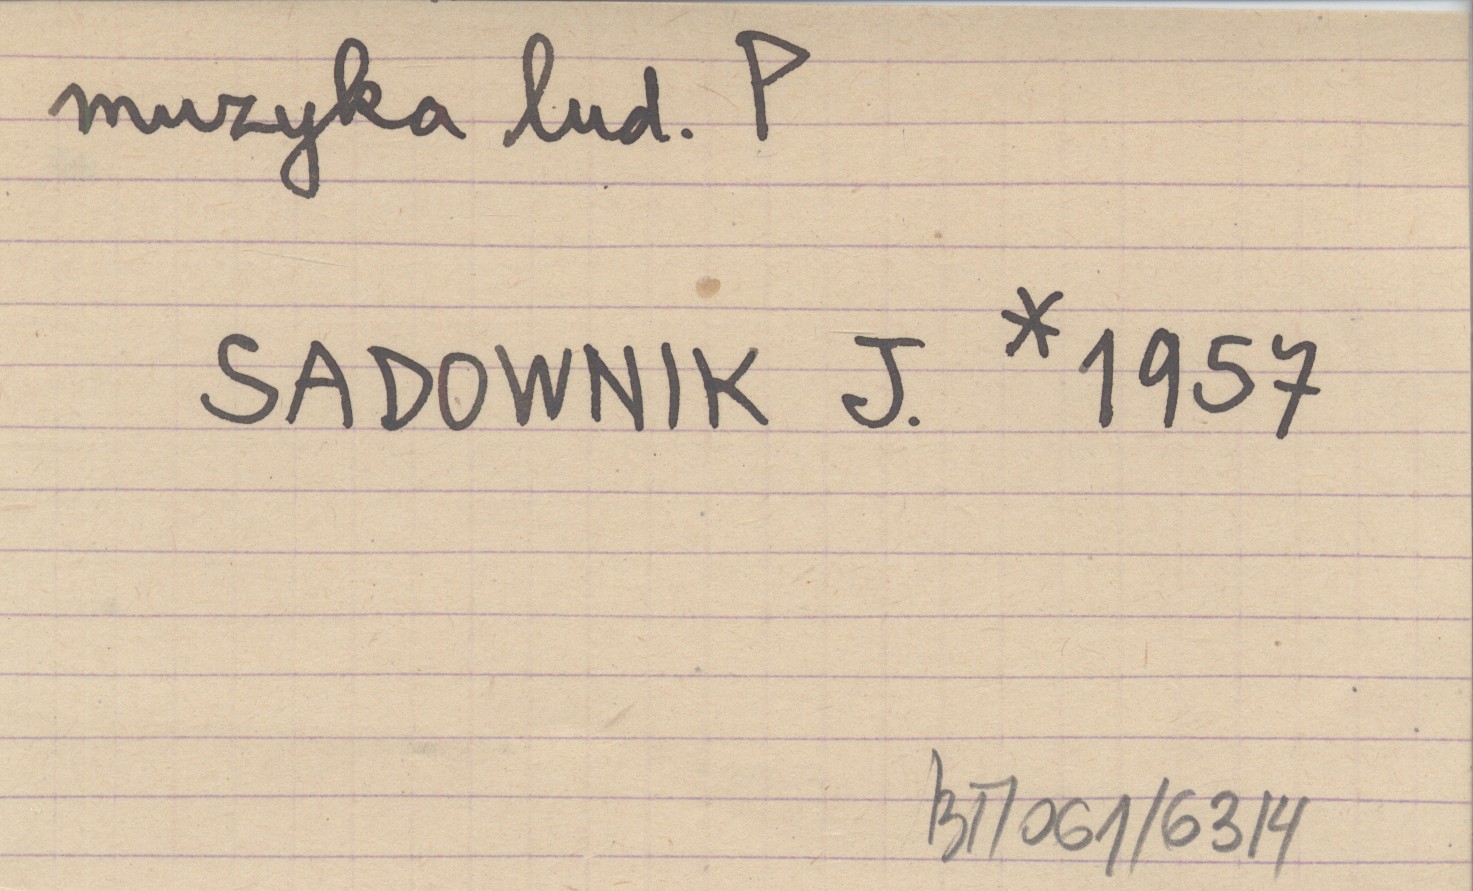 muzyka lud. P
SADOWNIK J. *1957
BT/061/63/4